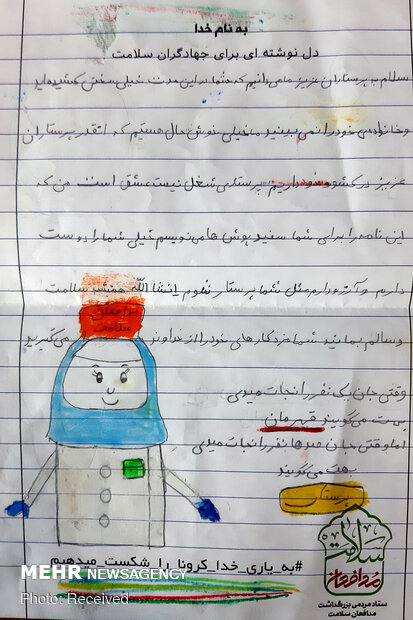 به نام خدا
دل نوشته ای برای جهادگران سلامت
سلام به پرستاران عزیز ما می دانیم که شما در این مدت خیلی سختی کشیده اید
و خانواده ی خود را نمی بینید ما خیلی خوش حال هستیم که انقدر پرستاران
عزیز در کشور خود داریم پرستاری شغل نیست عشق است من که
این نامه را برای شما سفید پوش ها می نویسم خیلی شما را دوست
دارم و آرزو دارم مثل شما پرستار شوم انشا الله همیشه سلامت
و سالم بمانید شما مزد کار های خود را از خداوند می گیرید
مدافعان
سلامت
وقتی جان یک نفر را نجات میدی
بهت می گویند قهرمان
اما وقتی جان صدها نفر را نجات میدی
بهت می گویند
پرستار
#به_یاری_خدا_کرونا_را_شکست_میدهیم
سلامت
مدافعان
ستاد مردمی بزرگداشت
مدافعان سلامت
MEHR NEWSAGENCY
Photo: Received